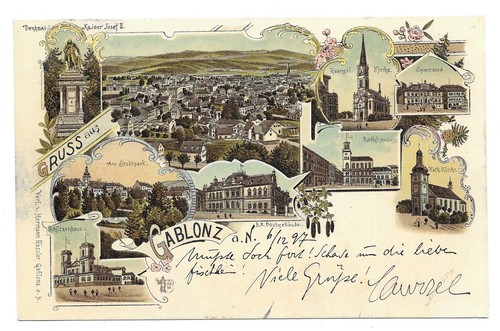 Denkmal Kaiser Josef II.
Evangel. Kirche.
Sparcassa
GRUSS aus
Am Stadtpark.
Rathhaus.
Kath. Kirche
K.K. Postgebäude.
Schützenhaus.
GABLONZ a. N. 6/12 97
Mußte doch fort! Schade um die lieben
fischlein! Viele Grüße!
Verl. v. Hermann Rössler Gablonz a. N.